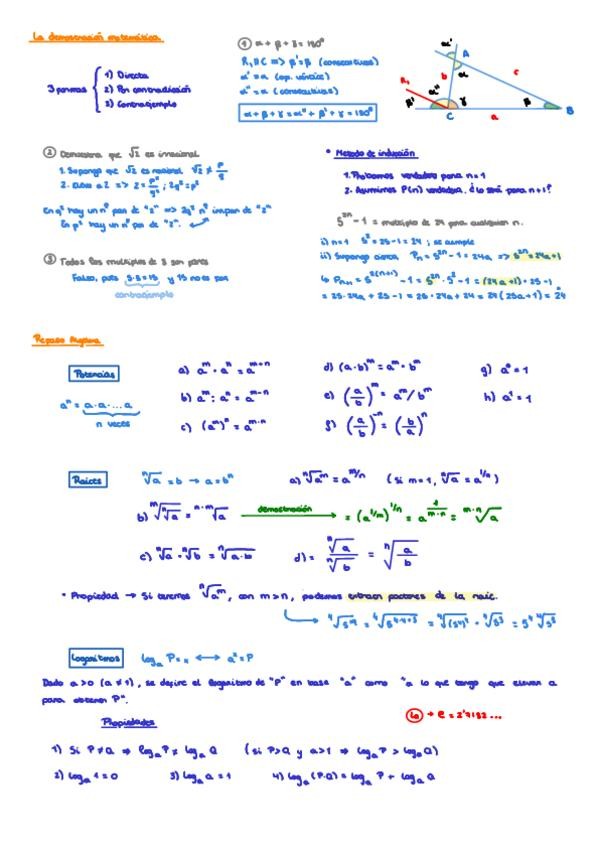 La demostración matemática
3 formas
1) Directa
2) Por contradicción
3) Contraejemplo
① α + β + γ = 180º
R₁ ∥ C => β' = β (consecutivos)
α' = α (op. vértice)
α'' = α (consecutivos)
α + β + γ = α'' + β' + γ = 180º
α' A
R₁ b α c
β' α'' γ β
C a B
② Demuestra que √2 es irracional
1. Supongo que √2 es racional √2 ≠ p/q
2. Elevo a 2 => 2 = p²/q² ; 2q² = p²
En q² hay un nº par de "2" => 2q² nº impar de "2"
En p² hay un nº par de "2".
③ Todos los múltiplos de 3 son pares
Falso, pues 5·3 = 15 y 15 no es par
contraejemplo
• Metodo de inducción
1. Probamos verdadera para n = 1
2. Asumimos P(n) verdadera. ¿lo será para n+1?
5²ⁿ - 1 = multiplo de 24 para cualquier n.
i) n = 1 5² = 25 - 1 = 24 ; se cumple
ii) Supongo cierta Pn = 5²ⁿ - 1 = 24a => 5²ⁿ = 24a + 1
↳ Pn+1 = 5²⁽ⁿ⁺¹⁾ - 1 = 5²ⁿ · 5² - 1 = (24a + 1) · 25 - 1
= 25 · 24a + 25 - 1 = 25 · 24a + 24 = 24 (25a + 1) = 24
Repaso Álgebra
Potencias
aⁿ = a · a · ... a
n veces
a) aᵐ · aⁿ = aᵐ⁺ⁿ
b) aᵐ : aⁿ = aᵐ⁻ⁿ
c) (aᵐ)ⁿ = aᵐ·ⁿ
d) (a · b)ᵐ = aᵐ · bᵐ
e) (a/b)ᵐ = aᵐ / bᵐ
f) (a/b)⁻ⁿ = (b/a)ⁿ
g) a⁰ = 1
h) a¹ = 1
Raices ⁿ√a = b → a = bⁿ a) ⁿ√aᵐ = a^(m/n) (si m = 1, ⁿ√a = a^(1/n))
b) ᵐ√ⁿ√a = ⁿ·ᵐ√a demostración = (a^(1/m))^(1/n) = a^(1/(m·n)) = ᵐ·ⁿ√a
c) ⁿ√a · ⁿ√b = ⁿ√(a·b) d) = ⁿ√a / ⁿ√b = ⁿ√(a/b)
• Propiedad → Si tenemos ⁿ√aᵐ, con m > n, podemos extraer factores de la raíz.
⁴√5¹⁹ = ⁴√5⁴·⁴⁺³ = ⁴√(5⁴)⁴ · ⁴√5³ = 5⁴ ⁴√5³
Logaritmos logₐ P = x ⟷ aˣ = P
Dado a > 0 (a ≠ 1), se define el logaritmo de "P" en base "a" como "a lo que tengo que elevar a
para obtener P".
Propiedades
ln → e = 2'7182...
1) Si P ≠ Q ⇒ logₐ P ≠ logₐ Q (si P > Q y a > 1 ⇒ logₐ P > logₐ Q)
2) logₐ 1 = 0 3) logₐ a = 1 4) logₐ (P·Q) = logₐ P + logₐ Q